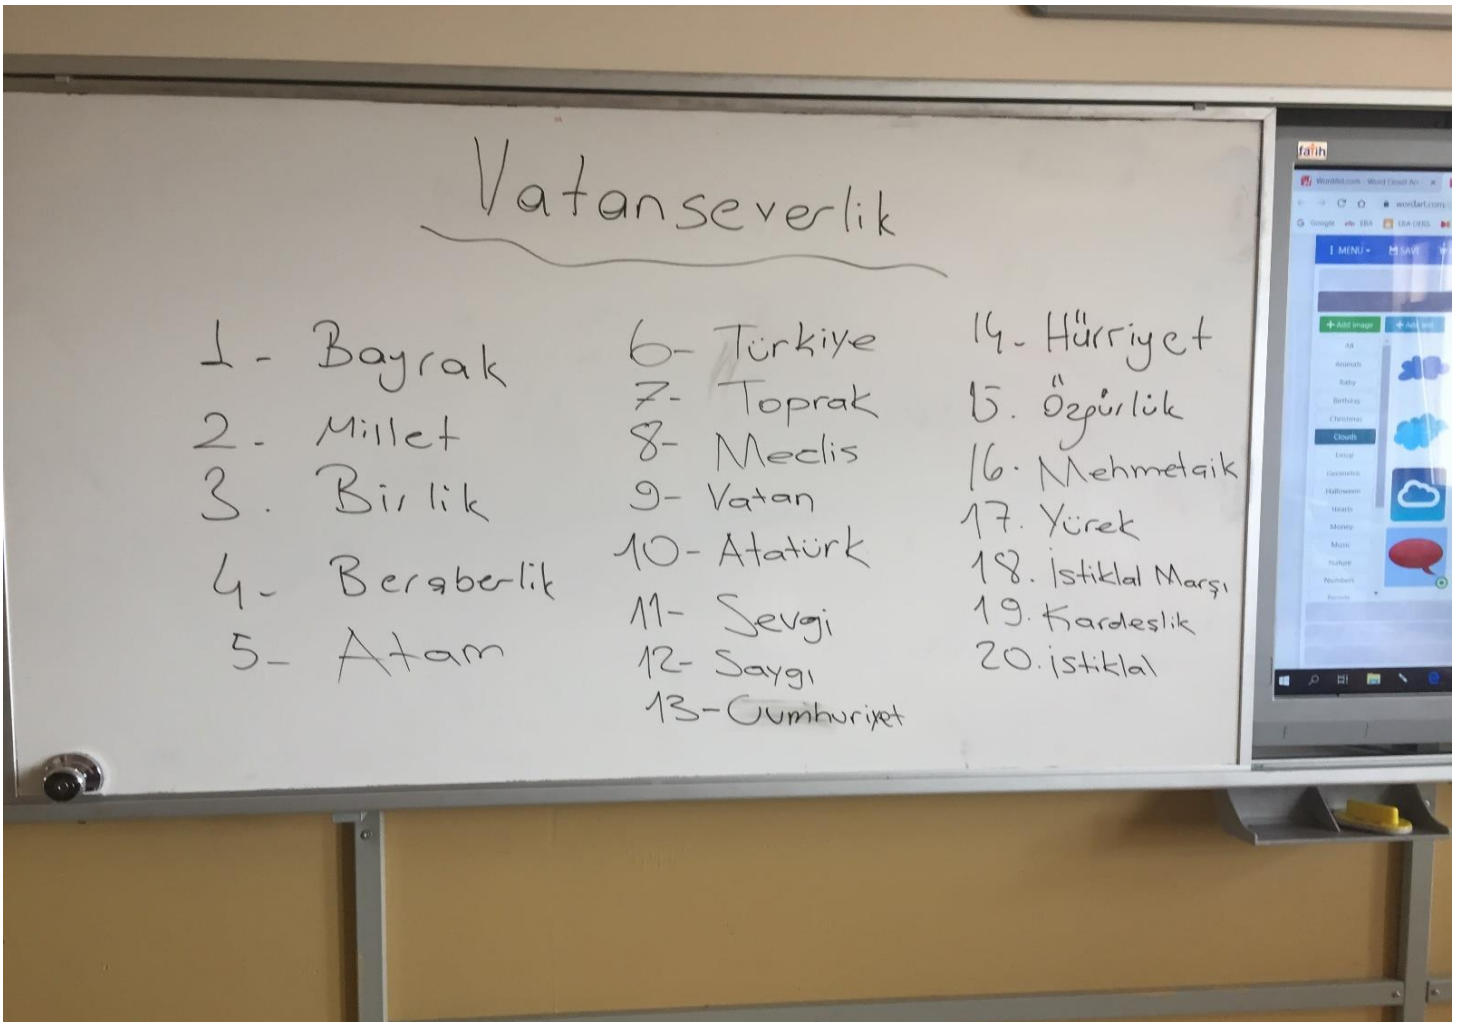 Vatanseverlik
1- Bayrak
2- Millet
3. Birlik
4- Beraberlik
5- Atam
6- Türkiye
7- Toprak
8- Meclis
9- Vatan
10- Atatürk
11- Sevgi
12- Saygı
13- Cumhuriyet
14- Hürriyet
15. Özgürlük
16. Mehmetçik
17. Yürek
18. İstiklal Marşı
19. Kardeşlik
20. İstiklal
fatih
WordArt.com - Word Cloud Art
wordart.com
Google EBA EBA DERS
MENU SAVE
+ Add image + Add text
All
Animals
Baby
Birthday
Christmas
Clouds
Emoji
Geometric
Halloween
Hearts
Money
Music
Nature
Numbers